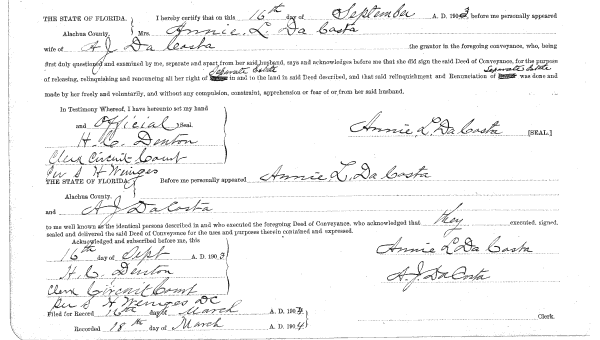 THE STATE OF FLORIDA. } I hereby certify that on this 16th day of September A. D. 1903, before me personally appeared
Alachua County. Mrs. Annie. L. Da Costa
wife of A J Da Costa the grantor in the foregoing conveyance, who, being
first duly questioned and examined by me, separate and apart from her said husband, says and acknowledges before me that she did sign the said Deed of Conveyance, for the purpose
of releasing, relinquishing and renouncing all her right of Separate Estate in and to the land in said Deed described, and that said relinquishment and Renunciation of Separate Estate was done and
made by her freely and voluntarily, and without any compulsion, constraint, apprehension or fear of or from her said husband.
In Testimony Whereof, I have hereunto set my hand
and Official Seal.
H. C. Denton
Clerk Circuit Court
Per S H Wienges
Annie L. Da Costa [SEAL.]
THE STATE OF FLORIDA } Before me personally appeared Annie L. Da Costa
Alachua County.
and A J Da Costa
to me well known as the identical persons described in and who executed the foregoing Deed of Conveyance, who acknowledged that they executed, signed,
sealed and delivered the said Deed of Conveyance for the uses and purposes therein contained and expressed.
Acknowledged and subscribed before me, this
16th day of Sept A. D. 1903
H. C. Denton
Clerk Circuit Court
Per S H Wienges DC
Annie L Da Costa
A. J. Da Costa
Filed for Record 16th day of March A. D. 1904
Recorded 18th day of March A. D. 1904
Clerk.